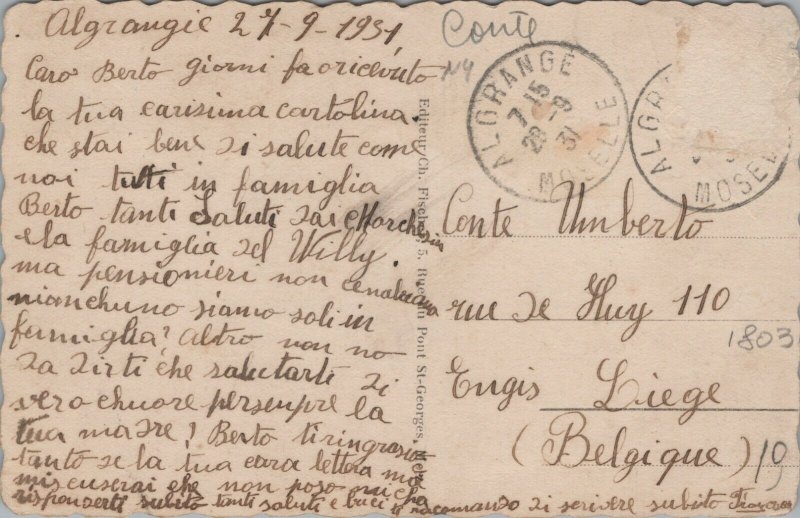 Algrangie 27-9-1931
Caro Berto giorni fa oricevuto
la tua carisima cartolina.
che stai bene di salute come
noi tutti in famiglia
Berto tanti Saluti dai Marchesin
e la famiglia del Willy.
ma pensionieri non
nianchuno siamo soli in
famiglia! Altro non no
da dirti che salutarti di
vero chuore persenpre la
tua madre! Berto ti ringrasio
tanto de la tua cara lettera ma
miscuserai che non poso
rispenderti subito tanti saluti e baci ti racomando di scrivere subito
Editeur Ch. Fischer, 5, Rue du Pont St-Georges,
Conte
NY
ALGRANGE
7 15
28-9
31
MOSELLE
ALGRA
MOSEL
Conte Umberto
rue de Huy 110
1803
Engis Liege
(Belgique)
10